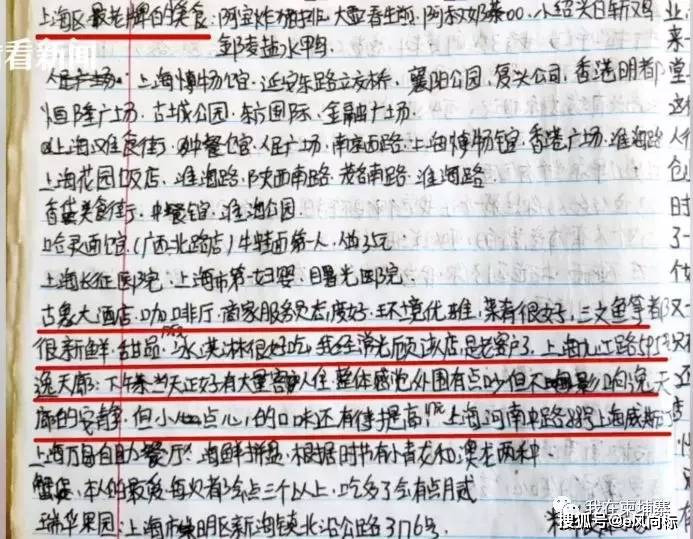 看看新闻
上海区最老牌的美食:阿宝炸猪排.大壶春生煎.阿叔奶茶00.小绍兴白斩鸡
邹凑盐水鸭
人民广场.上海博物馆.延安东路立交桥.襄阳公园.复兴公司.香港明都
恒隆广场.古城公园.东方国际.金融广场.
上海汉唯食街.种餐馆.人民广场.南京西路.上海博物馆.香港广场.淮海路
上海花园饭店.淮海路.陕西南路.茂名南路.淮海路.
美食街.中餐馆.淮海公园.
哈灵面馆.(广西北路店)牛蛙面第一人.做
上海长征医院.上海市第一妇婴.曙光医院.
古象大酒店.咖啡厅.商家服务员态度好.环境优雅.菜肴很好.三文鱼等都
很新鲜.甜品.冰淇淋很好吃.我经常光顾该店.是老客户了.上海九江路595
逸天廊:下午茶.当天正好有大量客人入住.整体感觉外围有点吵但不影响逸天
廊的安静.但小点心的口味还有待提高.上海河南中路88号上海威斯汀
上海万自助餐厅:海鲜拼盘.根据时节有小青龙和澳龙两种
蟹.本人的最爱每次都会点三个以上.吃多了会有点月贰
瑞华果园:上海市崇明区新海镇北沿公路3176号.
业
来
堂
人
仓
时
了
一
仅
我在柬埔寨
搜狐号@e风向标